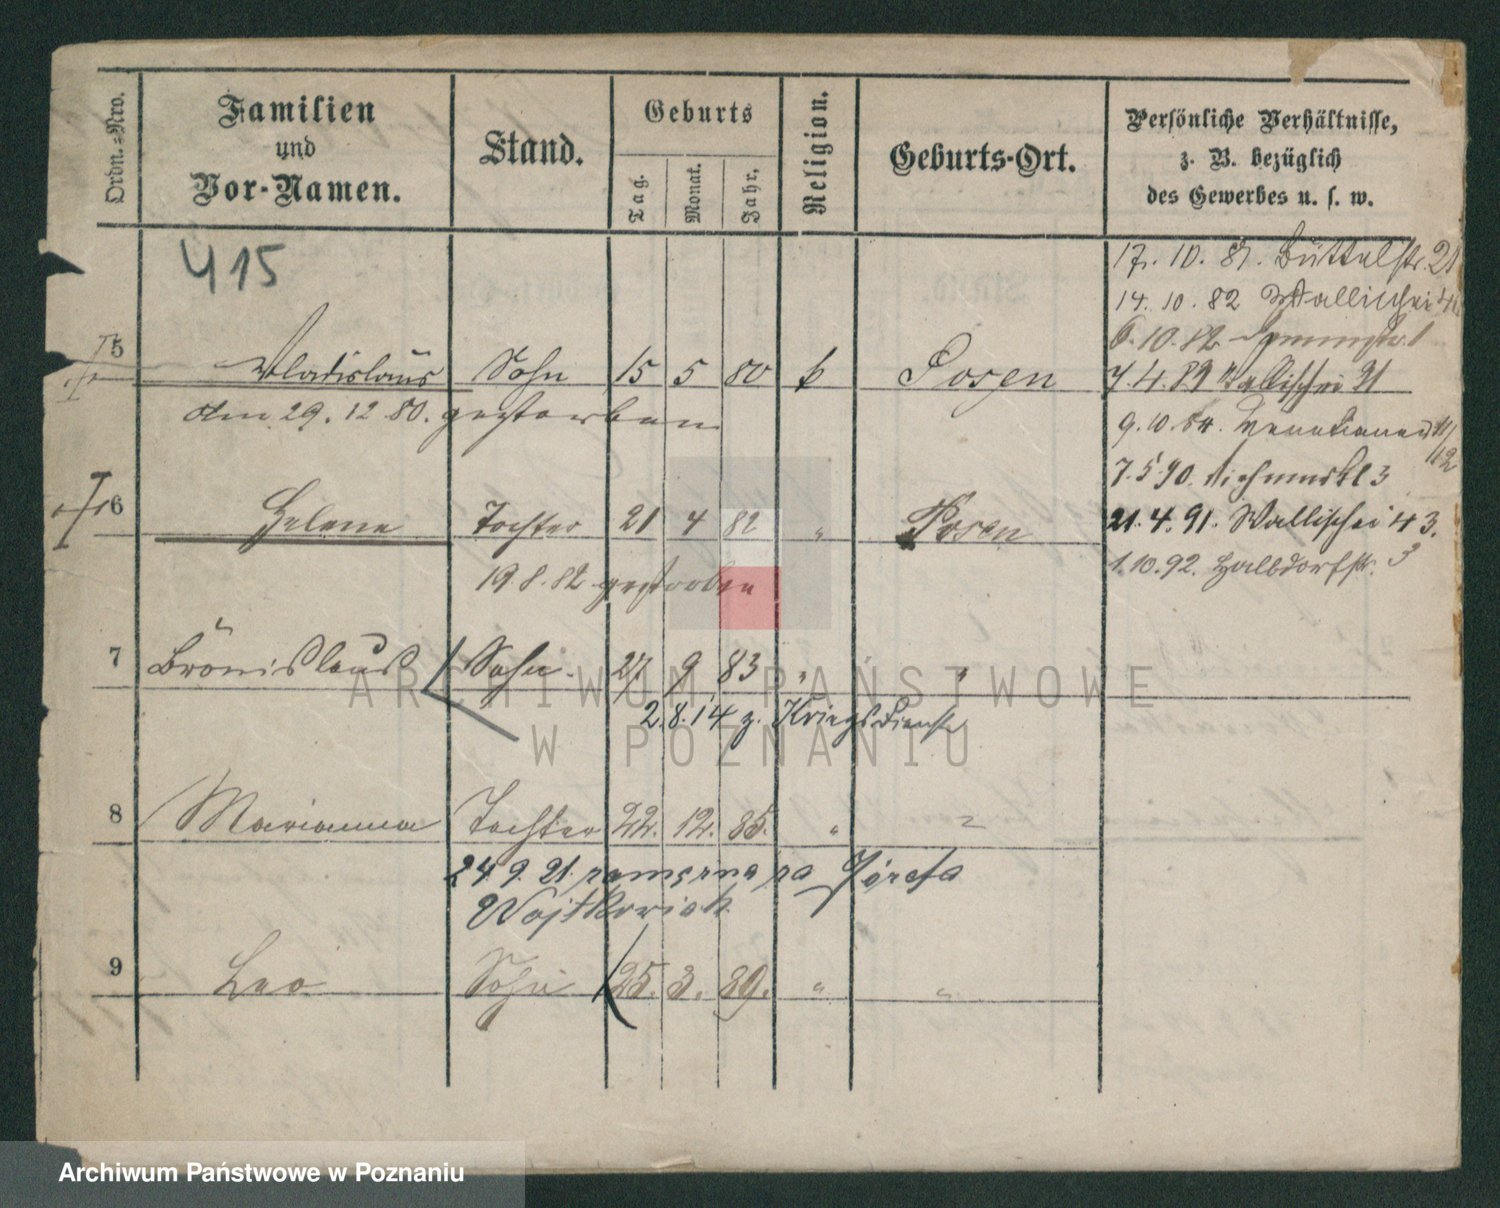 Ordn.-Nro.
Familien und Vor-Namen.
Stand.
Geburts
Tag.
Monat.
Jahr.
Religion.
Geburts-Ort.
Persönliche Verhältnisse, z. B. bezüglich des Gewerbes u. s. w.
415
17. 10. 81. Büttelstr. 21
14. 10. 82 Wallischei
6. 10. 82
5 Wladislaus Sohn 15 5 80 k Posen
7. 4. 89 Wallischei 21
am 29. 12 80. gestorben
9. 10. 84.
7. 5. 90. 3
6 Helene Tochter 21 4 82 " Posen
21. 4. 91. Wallischei 43.
19 8. 82 gestorben
1. 10. 92. Halbdorfstr. 3
7 Bronislaus Sohn 27. 9 83 " "
2. 8. 14 z. Kriegsdienst
8 Marianna Tochter 22. 12. 85. " "
24. 9. 21. zamężna za Józefa
Wojtkowiak
9 Leo Sohn 25. 3. 89. " "
ARCHIWUM PAŃSTWOWE
W POZNANIU
Archiwum Państwowe w Poznaniu